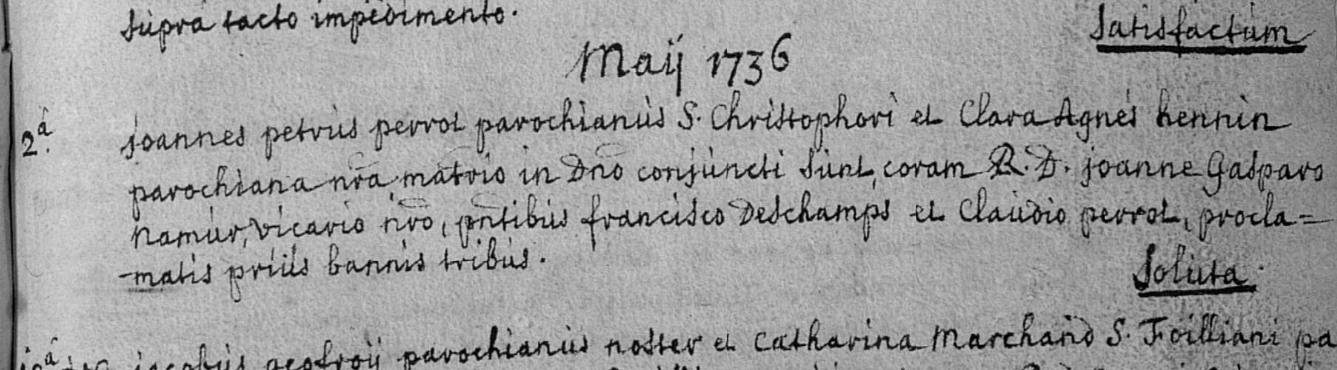 supra tacto impedimento.
Satisfactum
Maij 1736
2.a Joannes petrus perrot parochianus S. Christophori et Clara Agnes hennin
parochiana nra matrio in Dno conjuncti sunt, coram R. D. joanne Gasparo
Namur, vicario nro, pntibus francisco Deschamps et Claudio perrot, procla=
-matis priùs bannis tribus.
Soluta.
jacobus geofroij parochianus noster et Catharina Marchand S. Foilliani pa